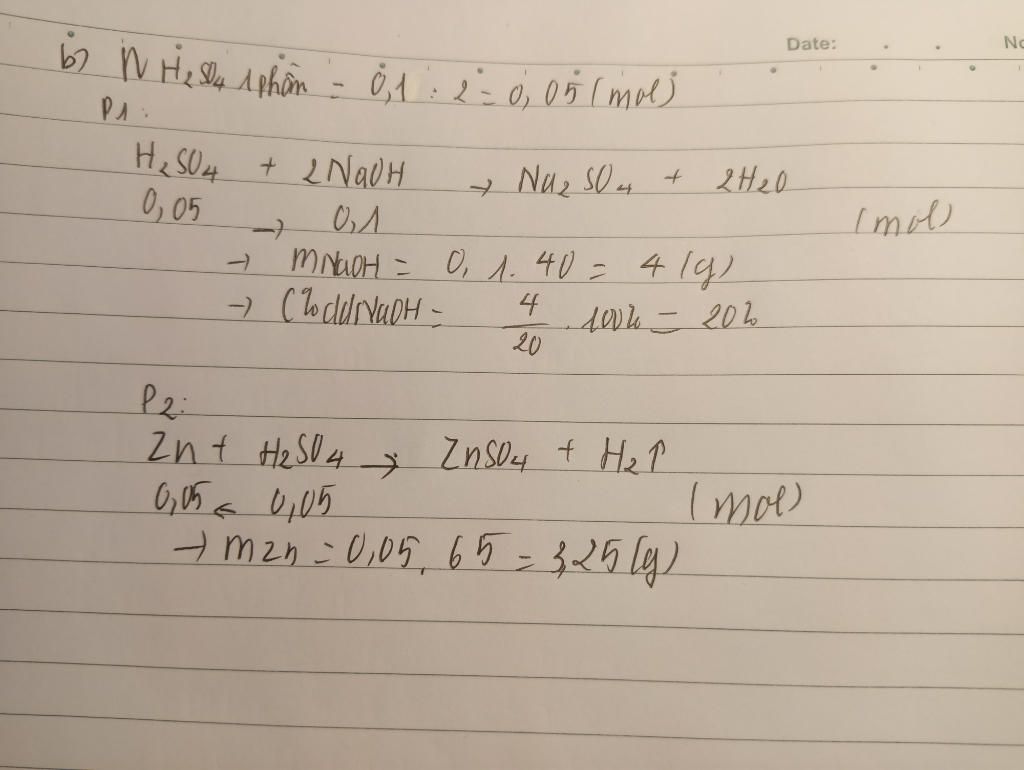 Date: No
b) n H₂SO₄ 1 phần = 0,1 : 2 = 0,05 (mol)
P1:
H₂SO₄ + 2NaOH → Na₂SO₄ + 2H₂O
0,05 → 0,1 (mol)
→ mNaOH = 0,1.40 = 4 (g)
→ C%ddNaOH = 4/20 . 100% = 20%
P2:
Zn + H₂SO₄ → ZnSO₄ + H₂↑
0,05 ← 0,05 (mol)
→ mZn = 0,05.65 = 3,25 (g)